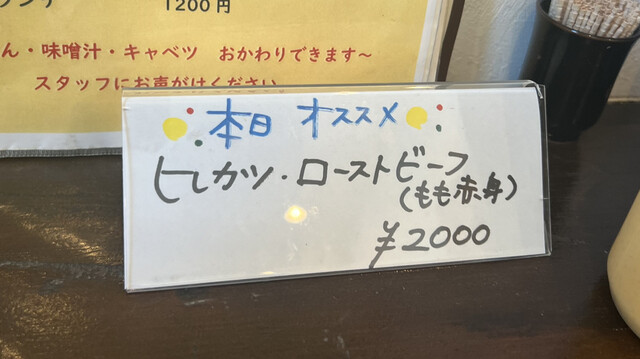 1200円
ん・味噌汁・キャベツ おかわりできます~
スタッフにお声がけください。
本日 オススメ
ヒレカツ・ローストビーフ
(もも赤身)
¥2000